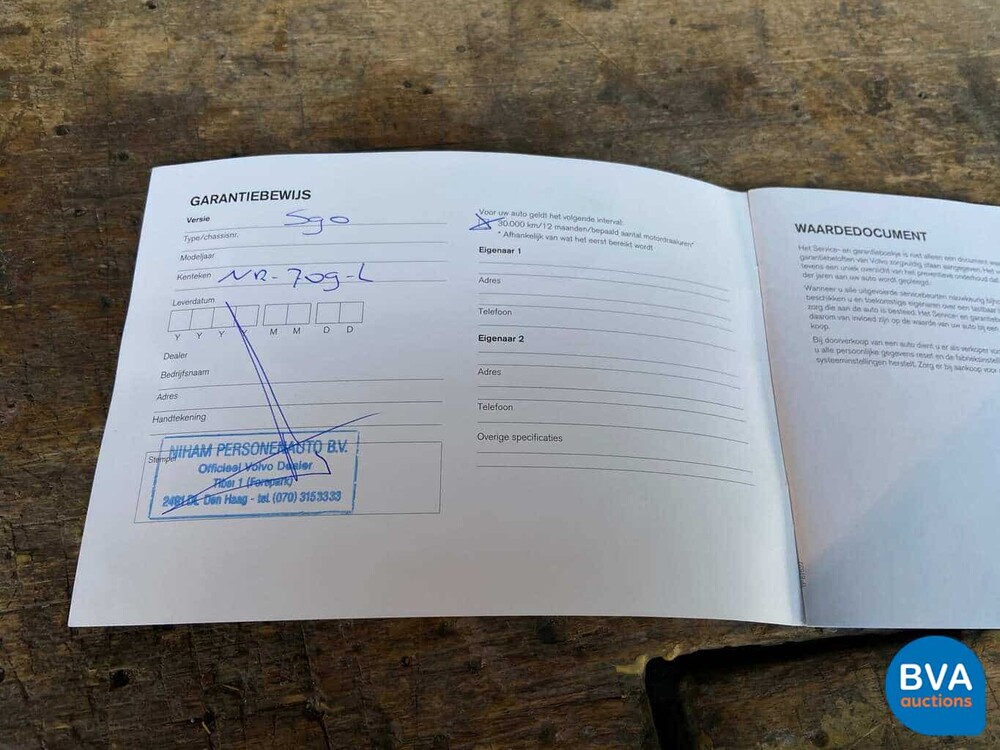 GARANTIEBEWIJS
Versie S90
Type/chassisnr.
Modeljaar
Kenteken NR-709-L
Leverdatum
Y Y Y Y M M D D
Dealer
Bedrijfsnaam
Adres
Handtekening
Stempel
NIHAM PERSONENAUTO B.V.
Officieel Volvo Dealer
Tiber 1 (Forepark)
2491 DL Den Haag - tel. (070) 3153333
Voor uw auto geldt het volgende interval:
30.000 km/12 maanden/bepaald aantal motordraaiuren*
* Afhankelijk van wat het eerst bereikt wordt
Eigenaar 1
Adres
Telefoon
Eigenaar 2
Adres
Telefoon
Overige specificaties
WAARDEDOCUMENT
Het Service- en garantieboekje is niet alleen een document waa
garantiebeloften van Volvo zorgvuldig staan aangegeven. Het
tevens een uniek overzicht van het preventieve onderhoud dat
der jaren aan uw auto wordt gepleegd.
Wanneer u alle uitgevoerde servicebeurten nauwkeurig bij
beschikken u en toekomstige eigenaren over een tastbaar
zorg die aan de auto is besteed. Het Service- en garantie
daarom van invloed zijn op de waarde van uw auto bij een
koop.
Bij doorverkoop van een auto dient u er als verkoper voo
u alle persoonlijke gegevens reset en de fabrieksinstell
systeeminstellingen herstelt. Zorg er bij aankoop voor
BVA
auctions